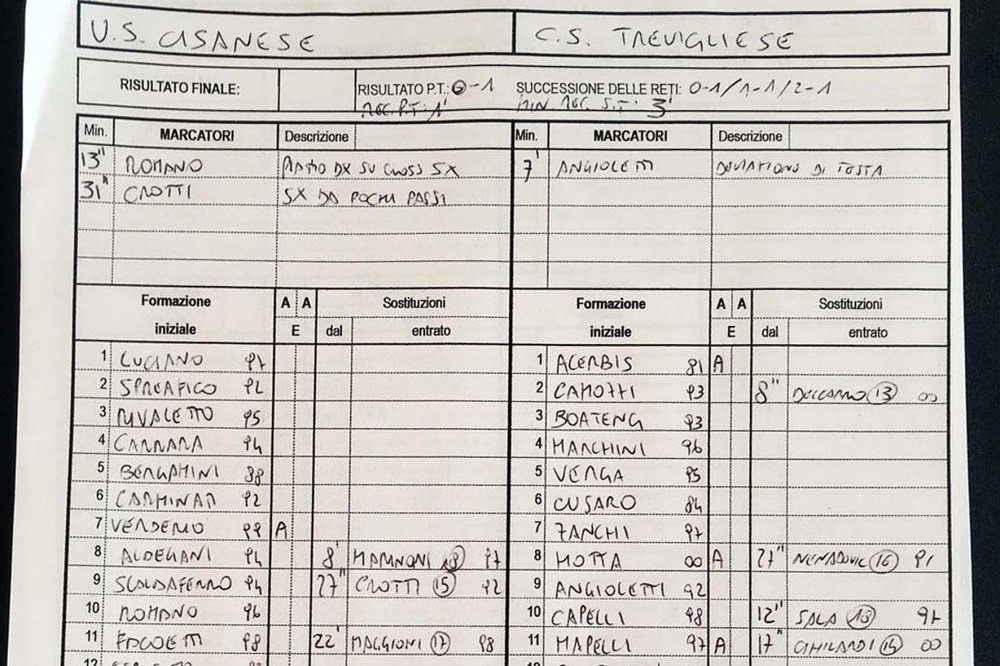 U.S. CISANESE C.S. TREVIGLIESE
RISULTATO FINALE: RISULTATO P.T.: 0-1 SUCCESSIONE DELLE RETI: 0-1/1-1/2-1
REC. P.T.: 1' MIN. REC. S.T.: 3'
Min. MARCATORI Descrizione Min. MARCATORI Descrizione
13" ROMANO PIATTO DX SU CROSS SX 7' ANGIOLETTI DEVIAZIONE DI TESTA
31" CROTTI SX DA POCHI PASSI
Formazione A A Sostituzioni Formazione A A Sostituzioni
iniziale E dal entrato iniziale E dal entrato
1 LUCIANO 97 1 ACERBIS 81 A
2 SPREAFICO 92 2 CAMOZZI 93 8" 13 00
3 RUVALETTO 95 3 BOATENG 93
4 CARRARA 94 4 MARCHINI 96
5 BERGAMINI 88 5 VERGA 95
6 CARMINATI 92 6 CUSARO 84
7 VERDERIO 99 A 7 ZANCHI 97
8 ALDEGANI 94 8' 18 97 8 MOTTA 00 A 27" NENADOVIC 16 91
9 SCALDAFERRO 94 27" CROTTI 15 92 9 ANGIOLETTI 92
10 ROMANO 96 10 CAPELLI 98 12" SALA 18 97
11 98 22' MAGGIONI 17 98 11 MAPELLI 97 A 17" GHILARDI 00
12